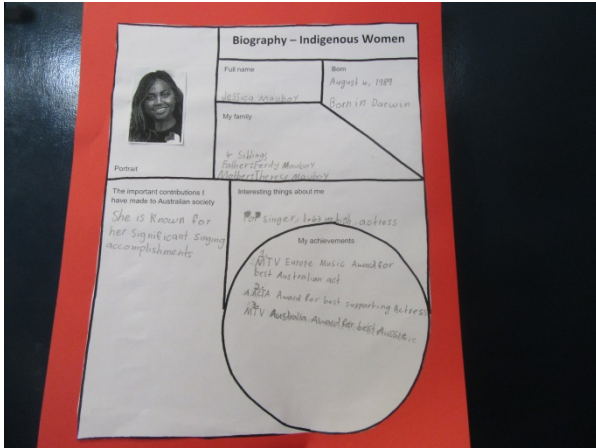 Biography – Indigenous Women
Full name
Jessica Mauboy
Born
August 4, 1989
Born in Darwin
My family
4 Siblings
Father: Ferdy Mauboy
Mother: Therese Mauboy
Portrait
The important contributions I
have made to Australian society
She is Known for
her significant singing
accomplishments
Interesting things about me
POP singer, actress
My achievements
MTV Europe Music Award for
best Australian act
AACTA Award for best supporting Actress
MTV Australia Award for best